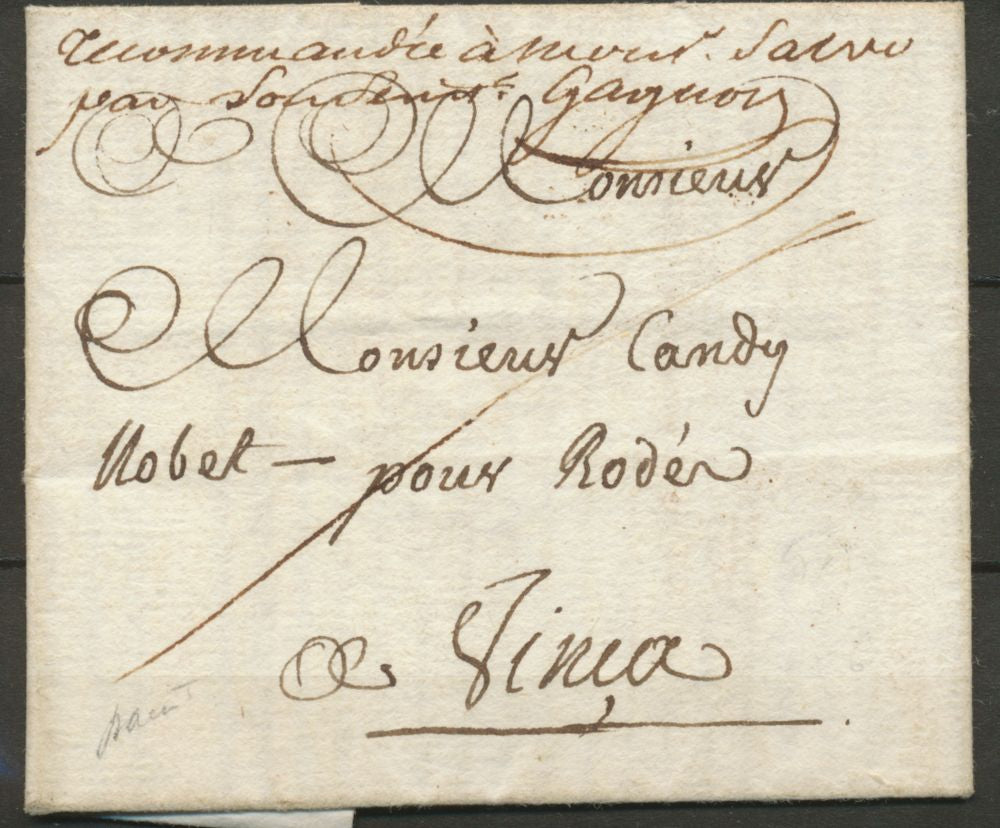 recommandée à mons.r Salvo
par son Servit.r Gagnon
Monsieur
Monsieur Candy
Nobet — pour Rodés
a Vinça